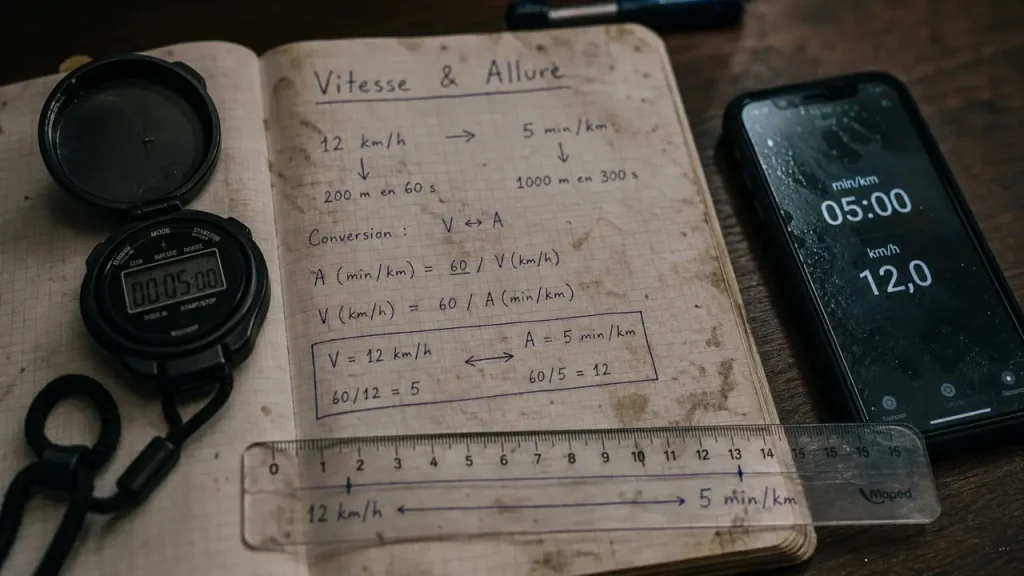 Vitesse & Allure
12 km/h → 5 min/km
200 m en 60 s
1000 m en 300 s
Conversion : V ↔ A
A (min/km) = 60 / V (km/h)
V (km/h) = 60 / A (min/km)
V = 12 km/h ↔ A = 5 min/km
60/12 = 5
60/5 = 12
0 1 2 3 4 5 6 7 8 9 10 11 12 13 14 15 15 15 15
12 km/h ↔ 5 min/km
Maped
MODE
START/STOP
00:05:00
min/km
05:00
km/h
12,0